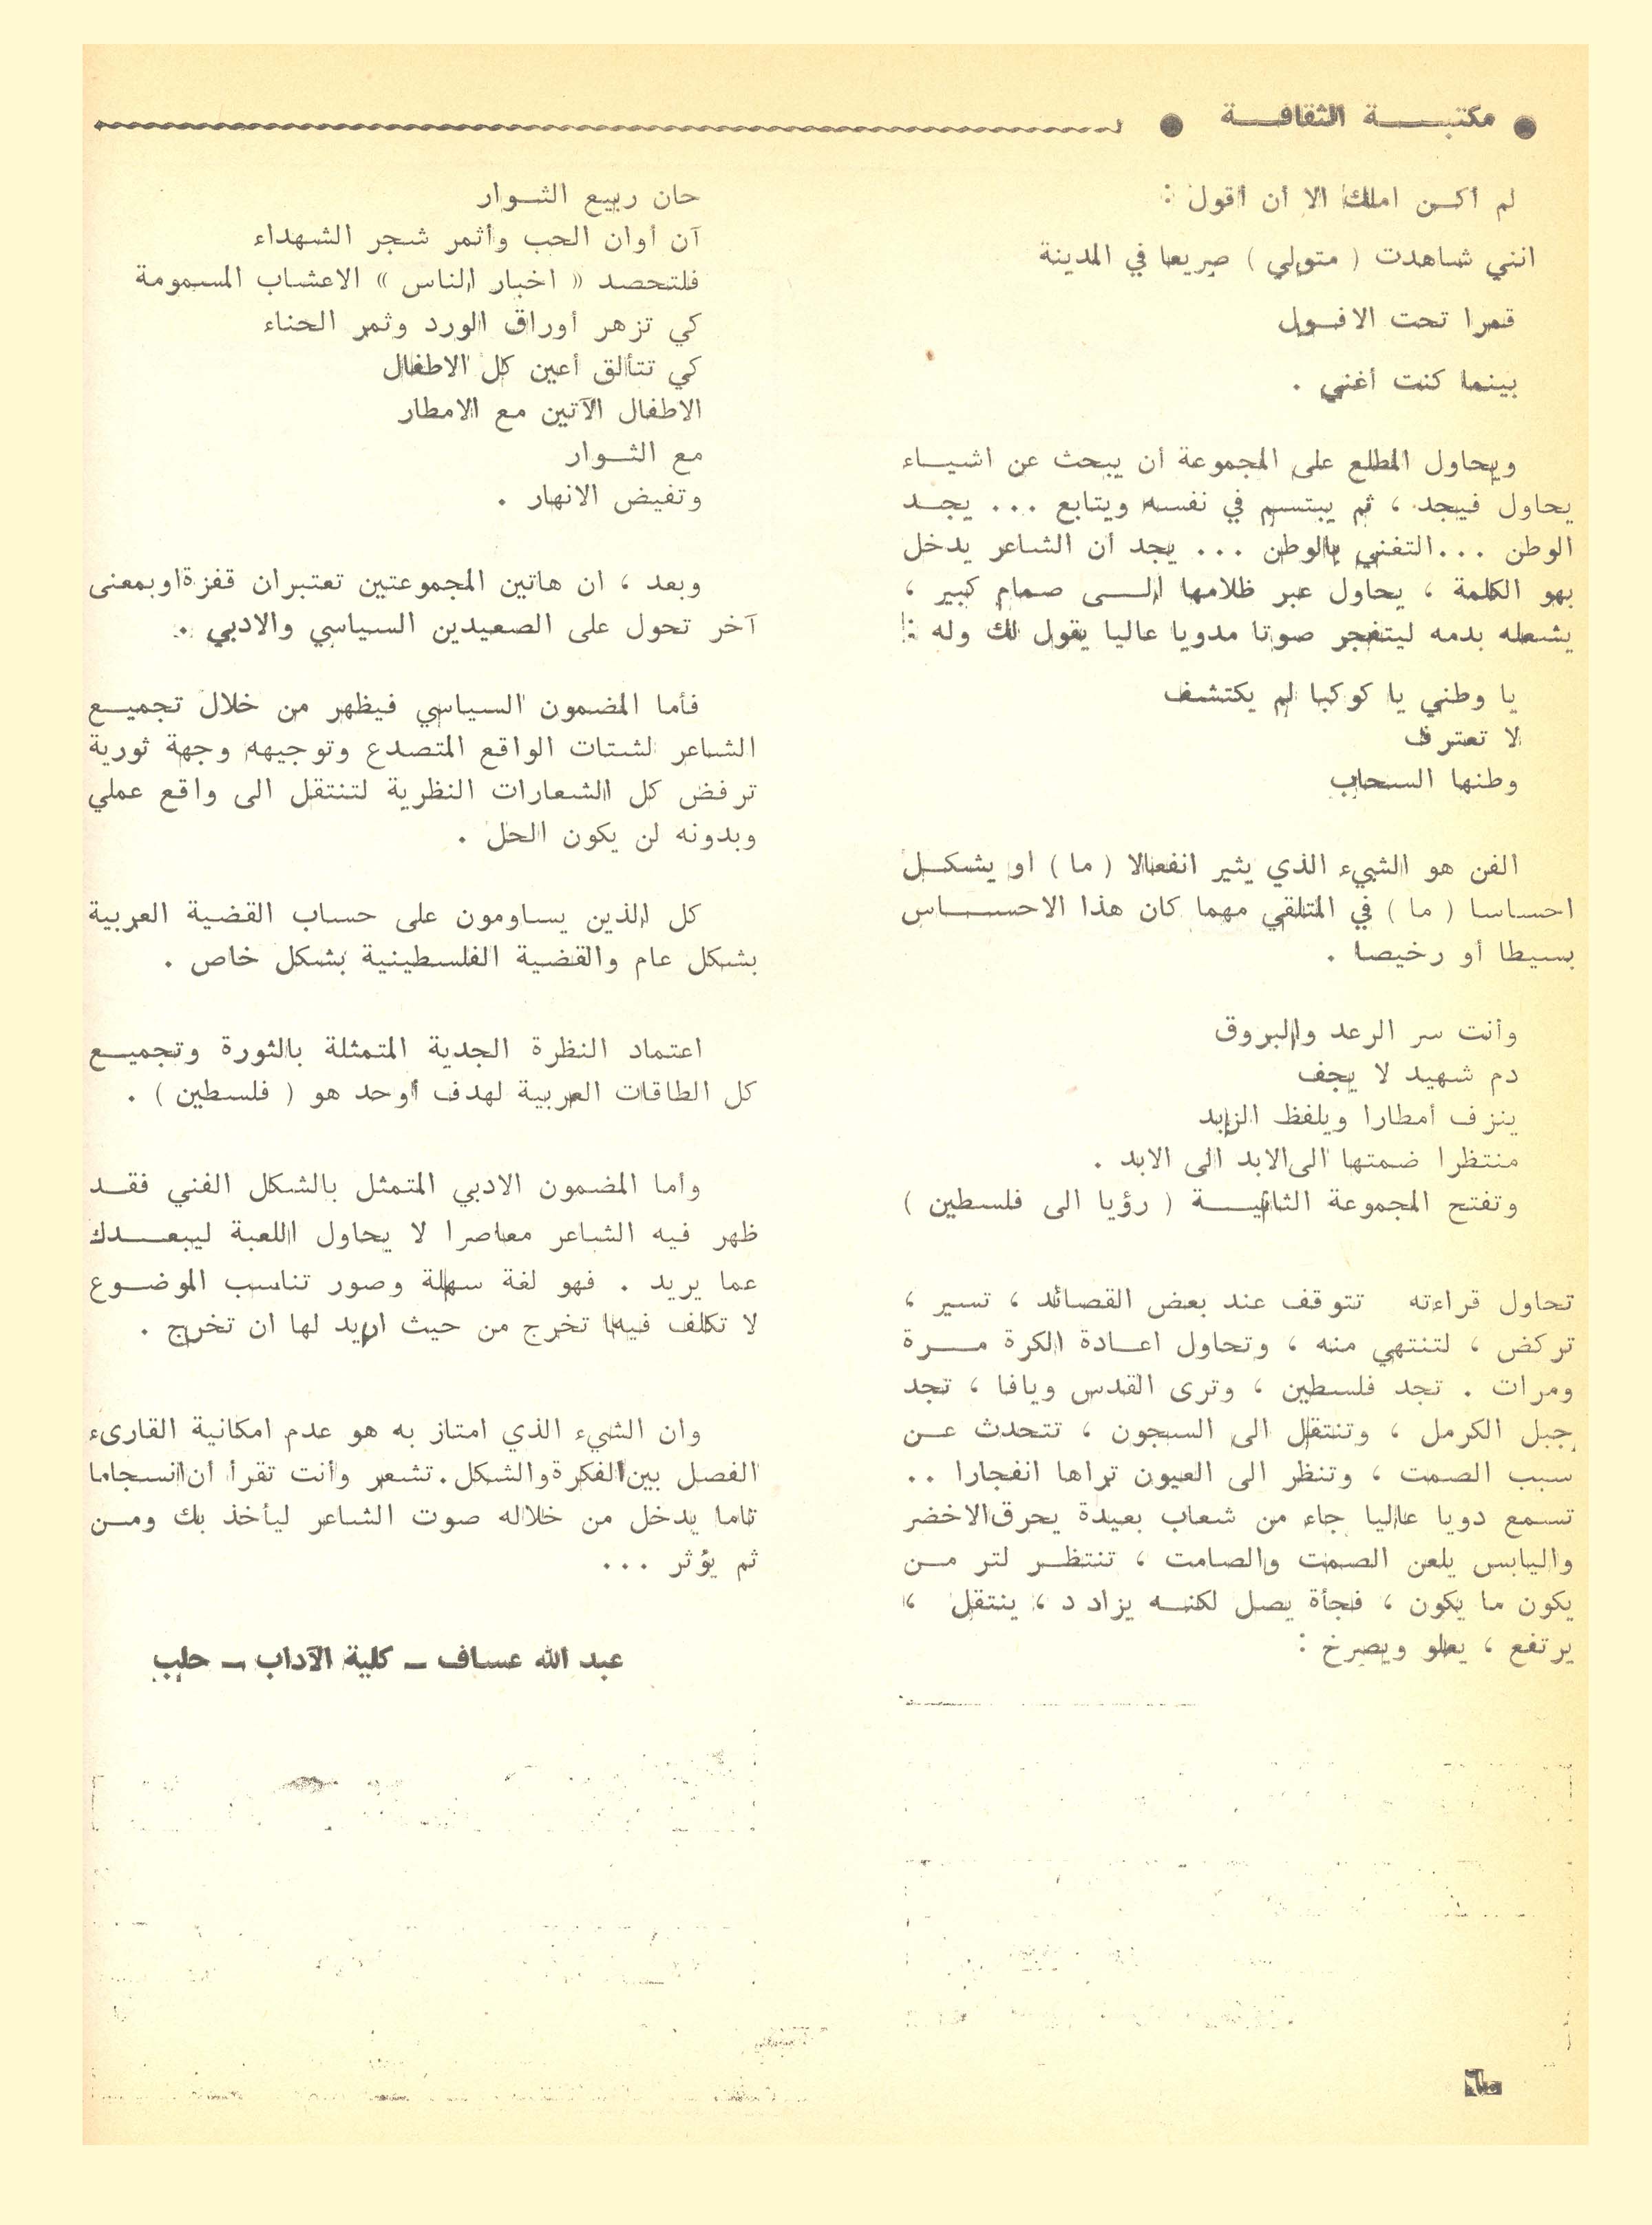 مكتبة الثقافة
لم أكن املك الا أن أقول :
انني شاهدت ( متولي ) صريعا في المدينة
قمرا تحت الافول
بينما كنت أغني .
ويحاول المطلع على المجموعة أن يبحث عن اشياء
يحاول فيجد ، ثم يبتسم في نفسه ويتابع ... يجد
الوطن ... التغني بالوطن ... يجد أن الشاعر يدخل
بهو الكلمة ، يحاول عبر ظلامها الى صمام كبير ،
يشعله بدمه ليتفجر صوتا مدويا عاليا يقول لك وله :
يا وطني يا كوكبا لم يكتشف
لا تعترف
وطنها السحاب
الفن هو الشيء الذي يثير انفعالا ( ما ) او يشكل
احساسا ( ما ) في المتلقي مهما كان هذا الاحساس
بسيطا أو رخيصا .
وأنت سر الرعد والبروق
دم شهيد لا يجف
ينزف أمطارا ويلفظ الزبد
منتظرا ضمتها الى الابد الى الابد .
وتفتح المجموعة الثانية ( رؤيا الى فلسطين )
تحاول قراءته تتوقف عند بعض القصائد ، تسير ،
تركض ، لتنتهي منه ، وتحاول اعادة الكرة مرة
ومرات . تجد فلسطين ، وترى القدس ويافا ، تجد
جبل الكرمل ، وتنتقل الى السجون ، تتحدث عن
سبب الصمت ، وتنظر الى العيون تراها انفجارا ..
تسمع دويا عاليا جاء من شعاب بعيدة يحرق الاخضر
واليابس يلعن الصمت والصامت ، تنتظر لتر من
يكون ما يكون ، فجأة يصل لكنه يزاد د ، ينتقل ،
يرتفع ، يعلو ويصرخ :
حان ربيع الثوار
آن أوان الحب وأثمر شجر الشهداء
فلتحصد « اخبار الناس » الاعشاب المسمومة
كي تزهر أوراق الورد وثمر الحناء
كي تتألق أعين كل الاطفال
الاطفال الآتين مع الامطار
مع الثوار
وتفيض الانهار .
وبعد ، ان هاتين المجموعتين تعتبران قفزة او بمعنى
آخر تحول على الصعيدين السياسي والادبي .
فأما المضمون السياسي فيظهر من خلال تجميع
الشاعر لشتات الواقع المتصدع وتوجيهه وجهة ثورية
ترفض كل الشعارات النظرية لتنتقل الى واقع عملي
وبدونه لن يكون الحل .
كل الذين يساومون على حساب القضية العربية
بشكل عام والقضية الفلسطينية بشكل خاص .
اعتماد النظرة الجدية المتمثلة بالثورة وتجميع
كل الطاقات العربية لهدف أوحد هو ( فلسطين ) .
وأما المضمون الادبي المتمثل بالشكل الفني فقد
ظهر فيه الشاعر معاصرا لا يحاول اللعبة ليبعدك
عما يريد . فهو لغة سهلة وصور تناسب الموضوع
لا تكلف فيها تخرج من حيث اريد لها ان تخرج .
وان الشيء الذي امتاز به هو عدم امكانية القارىء
الفصل بين الفكرة والشكل . تشعر وأنت تقرأ أن انسجاما
تاما يدخل من خلاله صوت الشاعر ليأخذ بك ومن
ثم يؤثر ...
عبد الله عساف – كلية الآداب – حلب